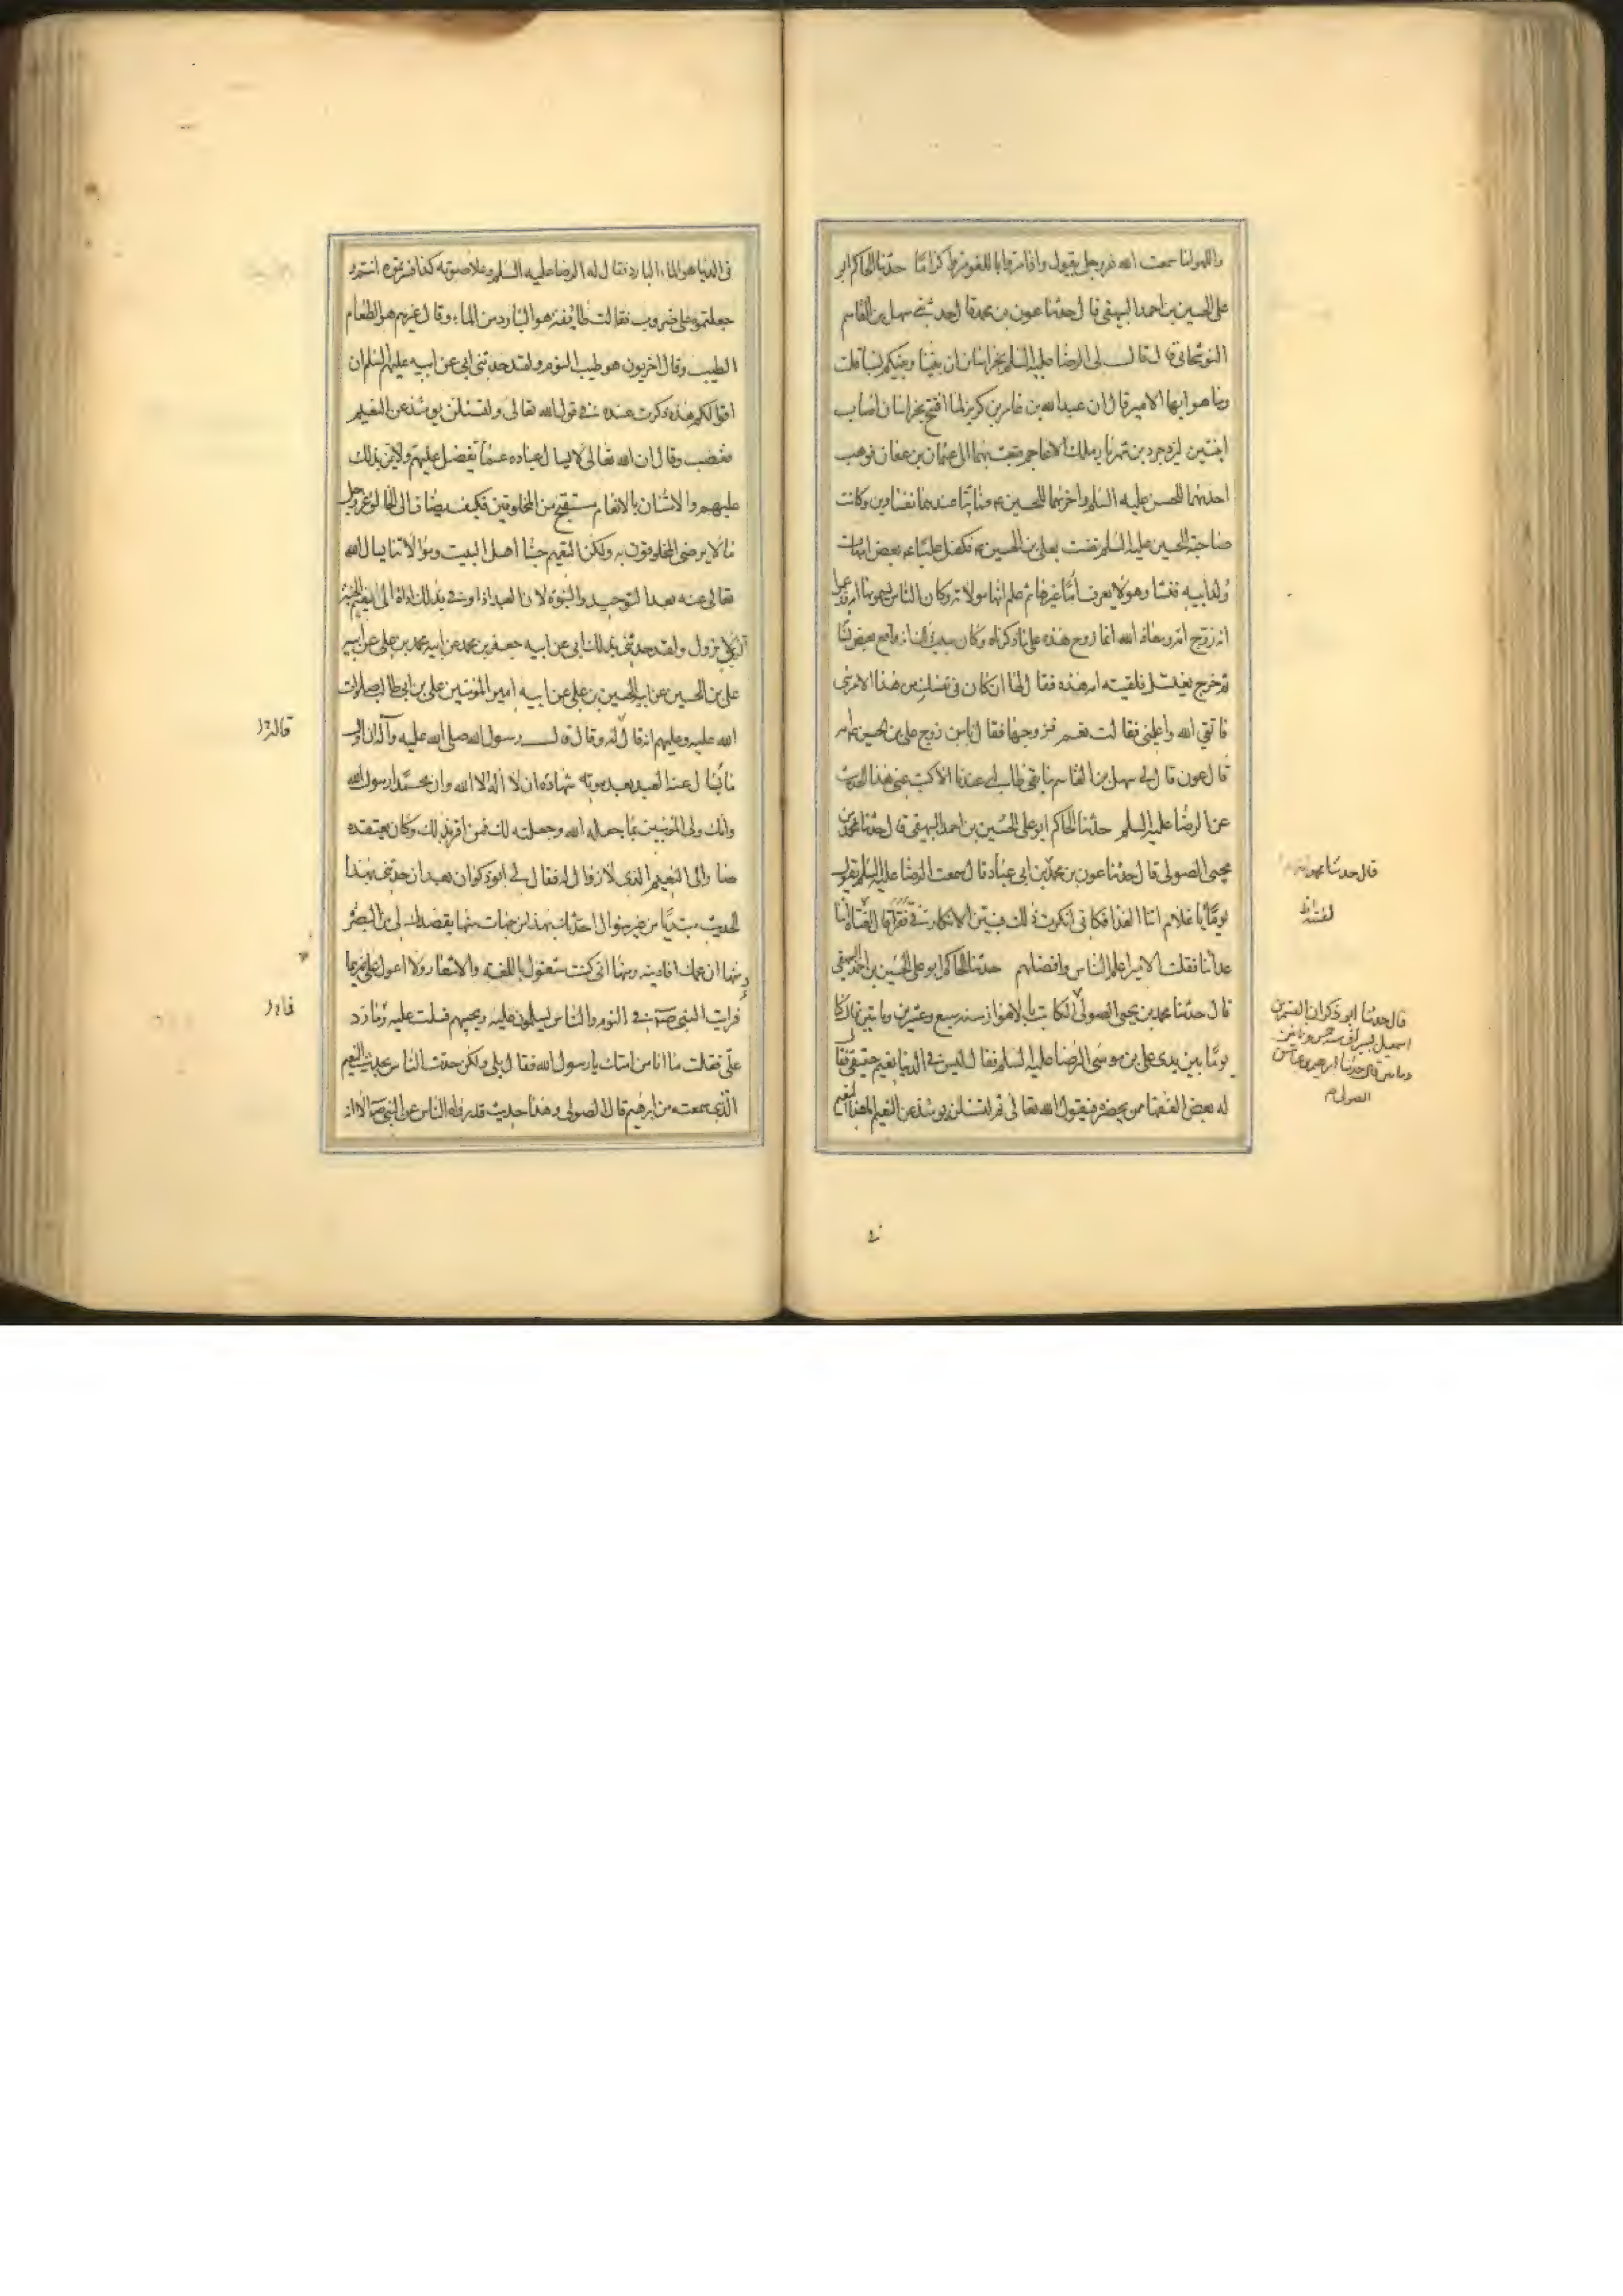 واللهو انا سمعت الله عزوجل يقول واذا مروا باللغو مروا كراما حدثنا الحاكم ابو
على الحسين بن احمد البيهقى قال حدثنا عون بن محمد قال حدثنى سهل بن القاسم
النوشجانى قال قال لى الرضا عليه السلم بخراسان ان بيننا وبينكم نسبا قلت
وما هو ايها الامير قال ان عبدالله بن عامر بن كريز لما افتتح خراسان اصاب
ابنتين ليزدجرد بن شهريار ملك الاعاجم فبعث بهما الى عثمان بن عفان فوهب
احديهما للحسن عليه السلم واخريهما للحسين ع فماتتا عندهما نفساوين وكانت
صاحبة الحسين عليه السلم نفست بعلى بن الحسين ع فكفل عليا ع بعض امهات
ولد ابيه فنشا وهو لا يعرف اما غيرها ثم علم انها مولاته وكان الناس يسمونها امه
انه زوج امه ومعاذ الله انما زوج هذه على ما ذكرناه وكان سبب ذلك انه واقع بعض نسائه
ثم خرج يغتسل فلقيته امه هذه فقال لها ان كان فى نفسك من هذا الامر شى
فاتقى الله واعلمينى فقالت نعم فزوجها فقال الناس زوج على بن الحسين امه
قال عون قال لى سهل بن القاسم ما بقى طالبى عندنا الا كتب عنى هذا الحديث
عن الرضا عليه السلم حدثنا الحاكم ابو على الحسين بن احمد البيهقى قال حدثنا محمد بن
يحيى الصولى قال حدثنا عون بن محمد بن ابى عباد قال سمعت الرضا عليه السلم يقول
يوما يا غلام اتنا الغذا فكانى انكرت ذلك فتبين الانكار فى فقرا قال لفتاه اتنا
غدائنا فقلت الامير اعلم الناس وافضلهم حدثنا الحاكم ابو على الحسين بن احمد البيهقى
قال حدثنا محمد بن يحيى الصولى الكاتب بالاهواز سنه سبع وعشرين ومايتين قال كنا
يوما بين يدى على بن موسى الرضا عليه السلم فقال ليس فى الدنيا نعيم حقيقى فقال
له بعض الفقها ممن يحضره فيقول الله تعالى ثم لتسئلن يومئذ عن النعيم اما هذا النعيم
قال حدثنا
قال حدثنا ابو ذكوان القسم بن
اسمعيل بسيراف سنه خمس وثمانين
ومايتين قال حدثنا ابرهيم بن عباس
الصولى
فى
فى الدنيا هو الماء البارد فقال له الرضا عليه السلم وعلا صوته كذا فسرتموه انتم و
جعلتموه على ضروب فقالت طائفة هو البارد من الماء وقال غيرهم هو الطعام
الطيب وقال اخريون هو طيب النوم ولقد حدثنى ابى عن ابيه عليهم السلم ان
اقوالكم هذه ذكرت عنده فى قول الله تعالى ولتسئلن يومئذ عن النعيم
فغضب وقال ان الله تعالى لا يسال عباده عما تفضل عليهم ولا يمن بذلك
عليهم والامتنان بالانعام مستقبح من المخلوقين فكيف يضاف الى الخالق عزوجل
ما لا يرضى المخلوقون به ولكن النعيم حبنا اهل البيت وموالاتنا يسال الله
تعالى عنه بعد التوحيد والنبوة لان العبد اذا وفى بذلك اداه الى نعيم الجنة
الذى لا يزول ولقد حدثنى بذلك ابى عن ابيه جعفر بن محمد عن ابيه محمد بن على عن ابيه
على بن الحسين عن ابيه الحسين بن على عن ابيه امير المؤمنين على بن ابى طالب صلوات
الله عليه وعليهم انه قال له وقال قال رسول الله صلى الله عليه وآله ان اول
ما يسال عنه العبد بعد موته شهادة ان لا اله الا الله وان محمدا رسول الله
وانك ولى المؤمنين بما جعله الله وجعلته لك فمن اقر بذلك وكان يعتقده
صار الى النعيم الذى لا زوال له فقال لى ابو ذكوان بعد ان حدثنى بهذا
الحديث مبتديا من غير سوال احدثك بهذا من جهات منها لقصدك لى من البصره
ومنها ان عمك افادنيه ومنها انى كنت مشغولا باللغه والاشعار ولا اعول على غيرهما
فرايت النبى ص فى النوم والناس يسلمون عليه ويجيبهم فسلمت عليه فما رد
على فقلت ما انا من امتك يا رسول الله فقال بلى ولكن حدث الناس بحديث النعيم
الذى سمعته من ابرهيم قال الصولى وهذا حديث قد رواه الناس عن النبى ص الا انه